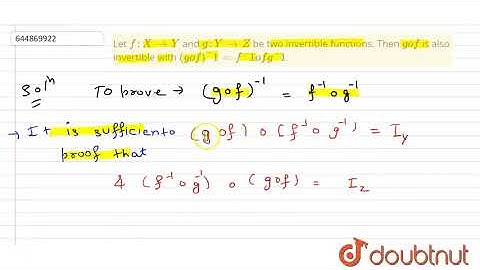 644869922
Let f: X → Y and g: Y → Z be two invertible functions. Then gof is also
invertible with (gof)^-1 = f^-1ofg^-1
Solⁿ
To prove → (gof)⁻¹ = f⁻¹og⁻¹
→ It is sufficiento (gof) o (f⁻¹o g⁻¹) = I_y
proof that
& (f⁻¹o g⁻¹) o (gof) = I_z
doubtnut